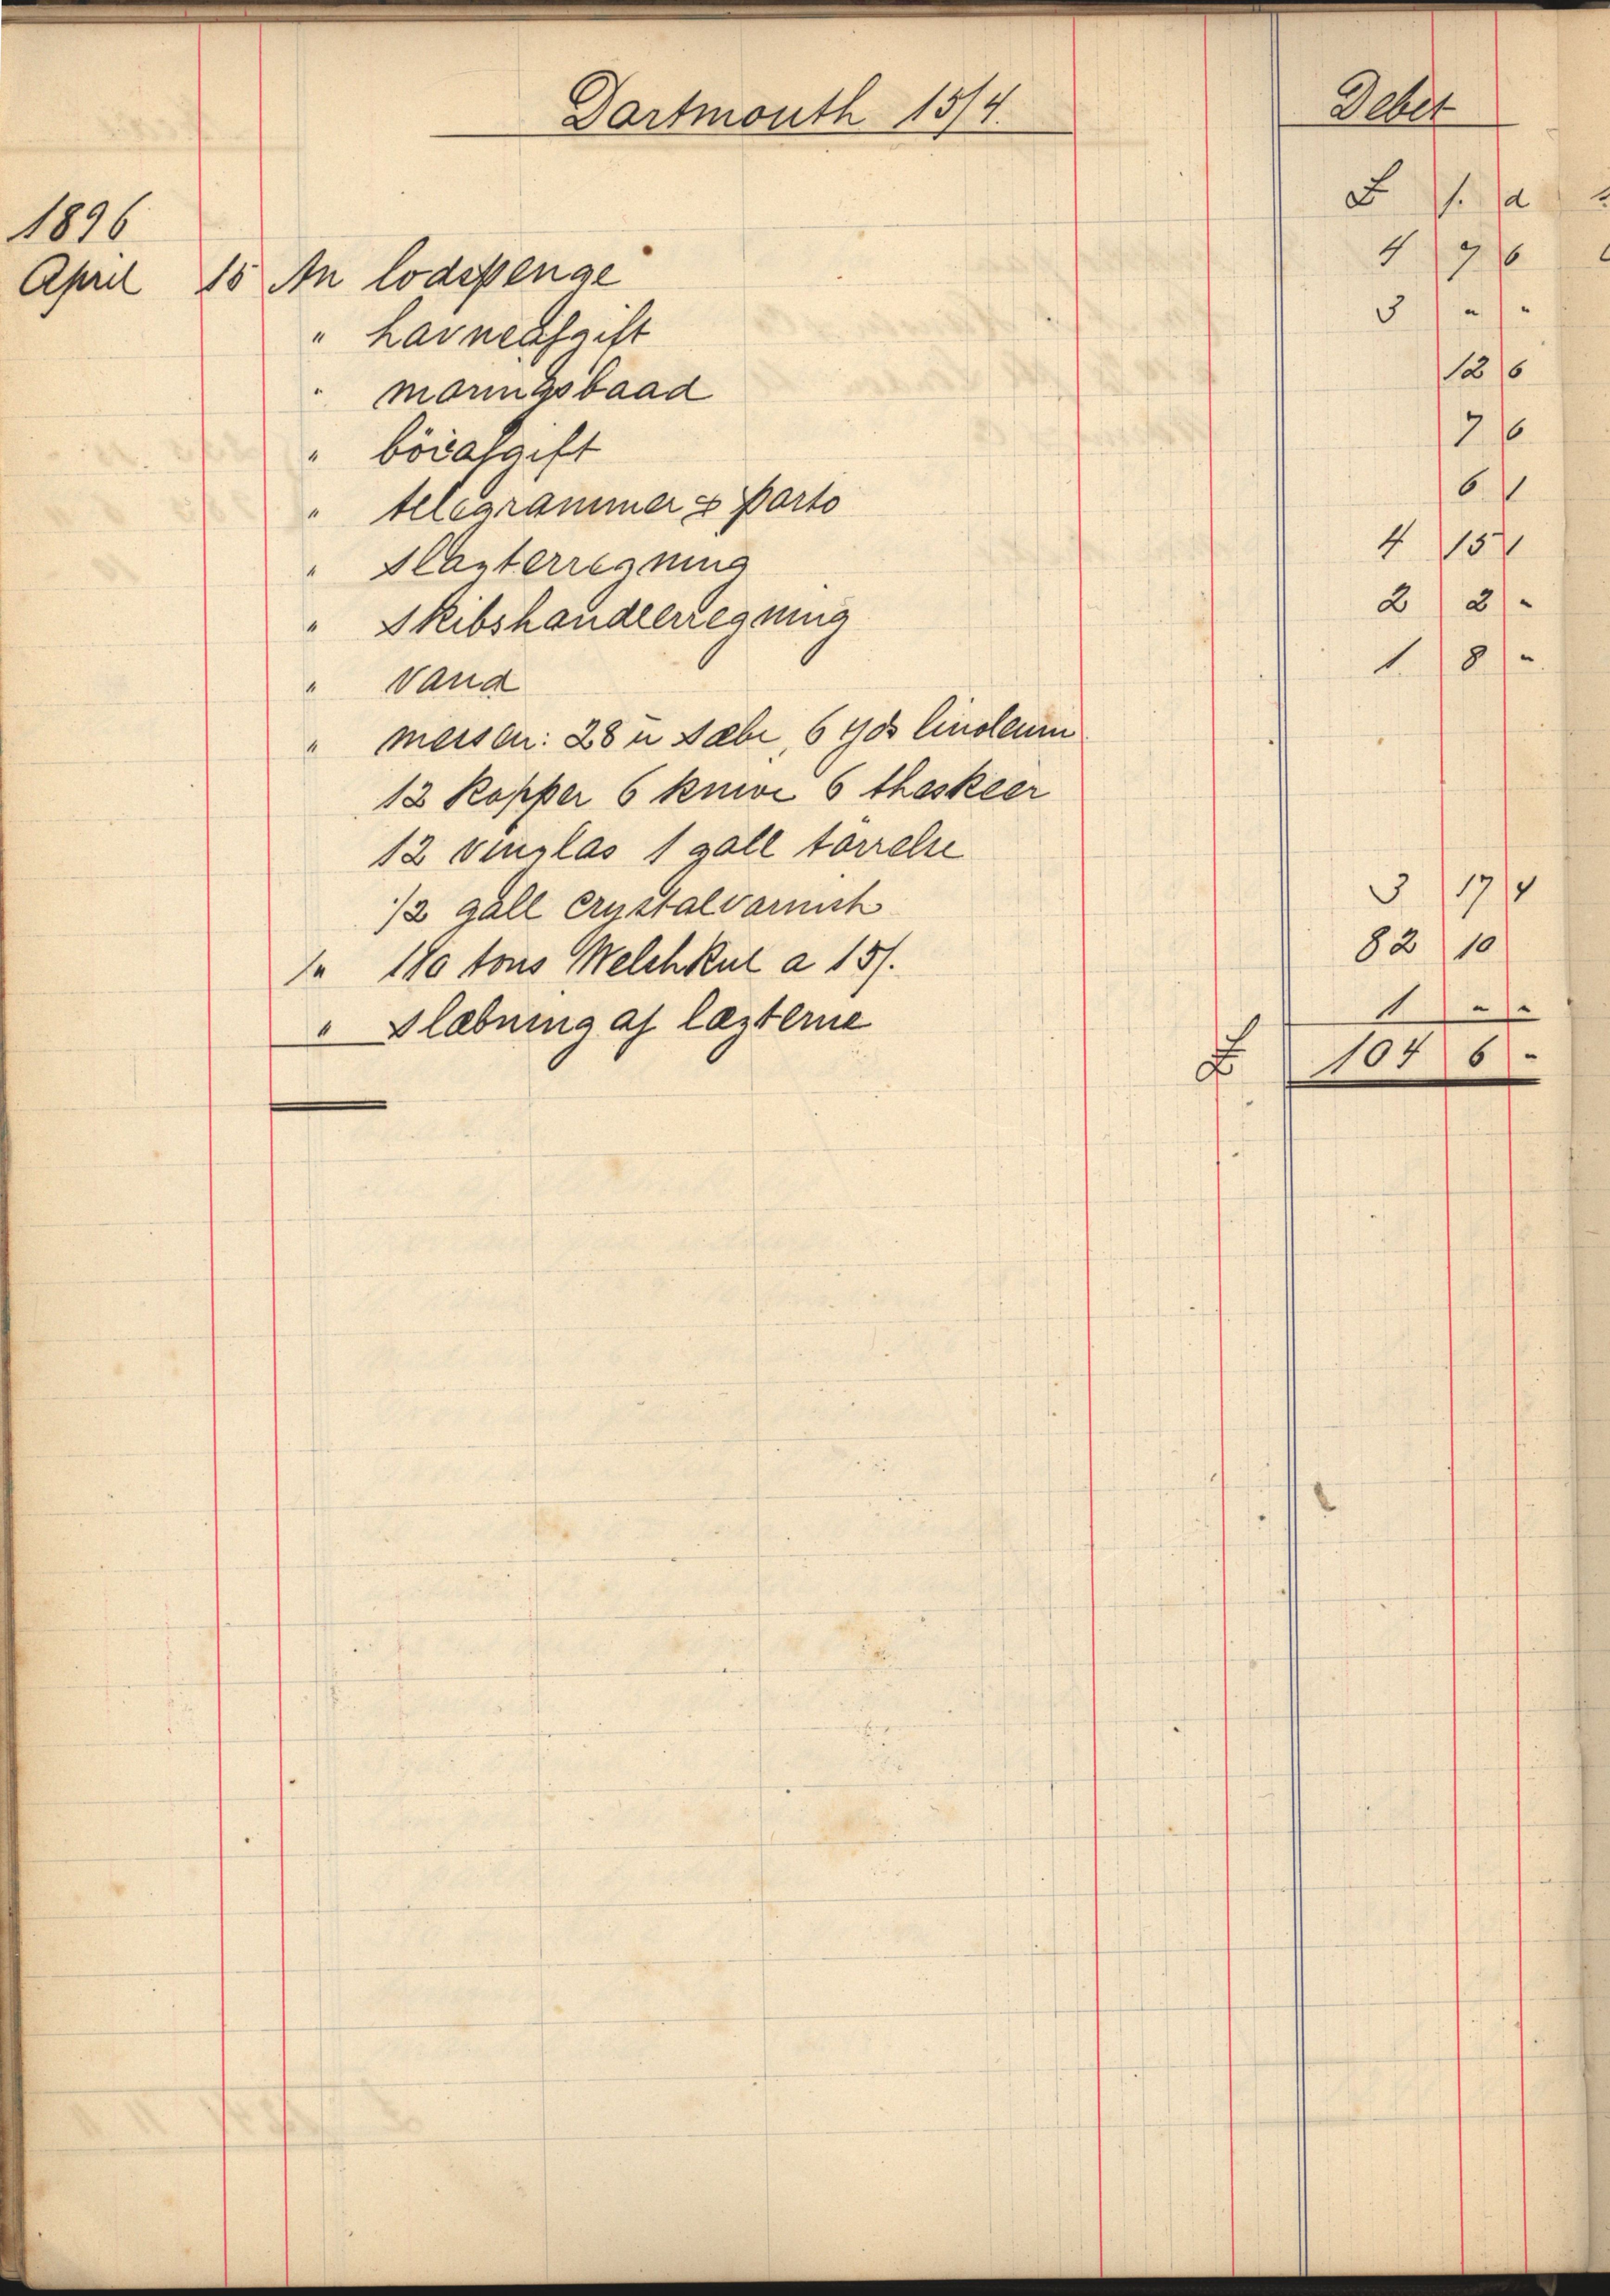 Dartmouth 15/4. Debet
£ s. d
1896
April 15 An lodspenge 4 7 6
" havneafgift 3 " "
" moringsbaad 12 6
" böieafgift 7 6
" telegrammer & porto 6 1
" Slagterregning 4 15 1
" Skibshandlerregning 2 2 -
" Vand 1 8 -
" messen: 28 u sæbe, 6 yds linoleum
12 kopper 6 knive 6 theskeer
12 vinglas 1 gall törrelse
1/2 gall crystalvarnish 3 17 4
" 110 tons Welchkul a 15/. 82 10
" Slæbning af lægterne 1 " -
£ 104 6 -